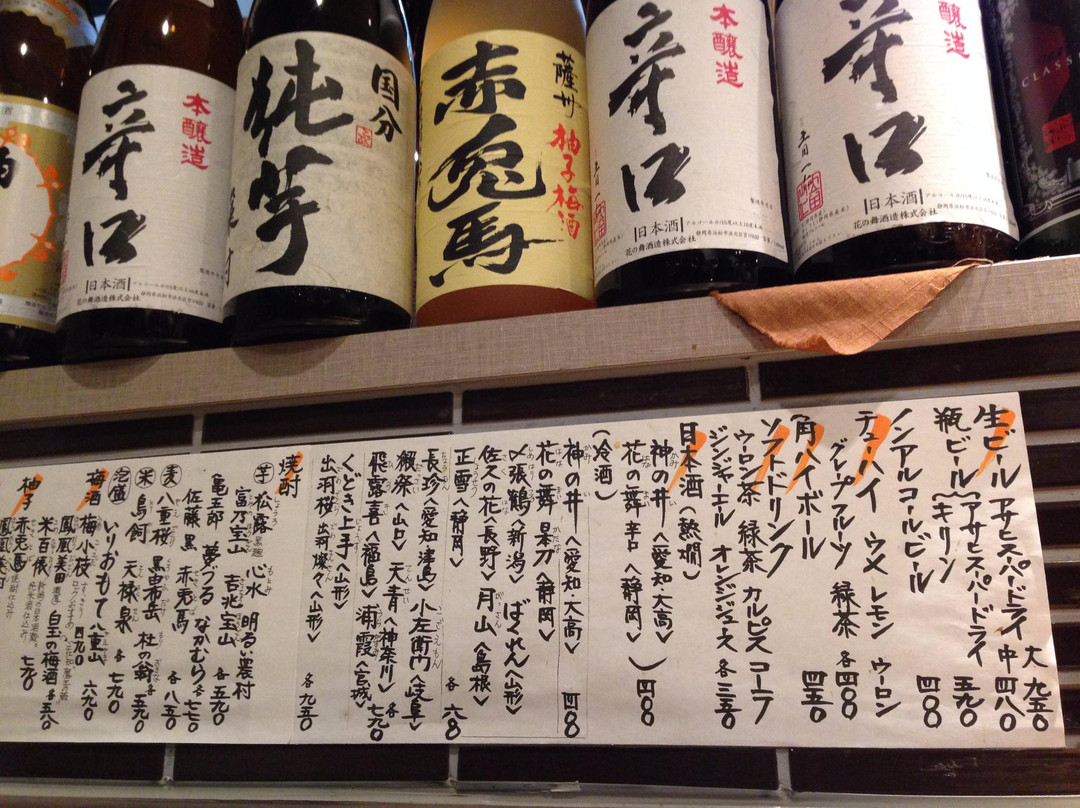 本醸造
辛口
日本酒
花の舞酒造株式会社
国分
純芋
薩州
赤兎馬
柚子梅酒
本醸造
辛口
日本酒
花の舞酒造株式会社
本醸造
辛口
日本酒
花の舞酒造株式会社
CLASS
生ビール アサヒスーパードライ 大 九五〇
中 四八〇
瓶ビール {アサヒスーパードライ
キリン 五九〇
ノンアルコールビール 四〇〇
チューハイ ウメ レモン ウーロン
グレープフルーツ 緑茶 各四〇〇
角ハイボール 四五〇
ソフトドリンク
ウーロン茶 緑茶 カルピス コーラ
ジンジャエール オレンジジュース 各三五〇
日本酒(熱燗)
神の井〈愛知・大高〉
花の舞 辛口〈静岡〉 四〇〇
(冷酒)
神の井〈愛知・大高〉 四〇〇
花の舞 〈静岡〉
〆張鶴〈新潟〉 ばくれん〈山形〉
佐久の花〈長野〉 月山〈島根〉
正雪〈静岡〉 各六八〇
長珍〈愛知 津島〉 小左衛門〈岐阜〉
獺祭〈山口〉 天青〈神奈川〉 各
飛露喜〈福島〉 浦霞〈宮城〉 七九〇
くどき上手〈山形〉
出羽桜 出羽燦々〈山形〉 各九五〇
焼酎
芋 松露 黒麹 心水 明るい農村
富乃宝山 吉兆宝山
亀五郎 夢づる なかむら 各
佐藤 黒 赤兎馬 七七〇
麦 八重桜 各八五〇
米 鳥飼 杜の翁 各五九〇
泡盛 いりおもて 八重山 六九〇
梅酒 梅小枝 四九〇
鳳凰美田
米百俵 白玉の梅酒 各五八〇
柚子 赤兎馬 七五〇